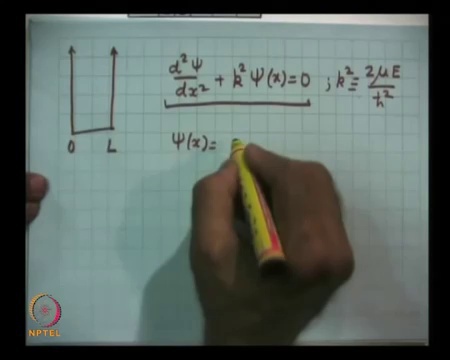 d²Ψ/dx² + k² Ψ(x) = 0 ; k² ≡ 2μE/ħ²
0 L
Ψ(x) =
NPTEL